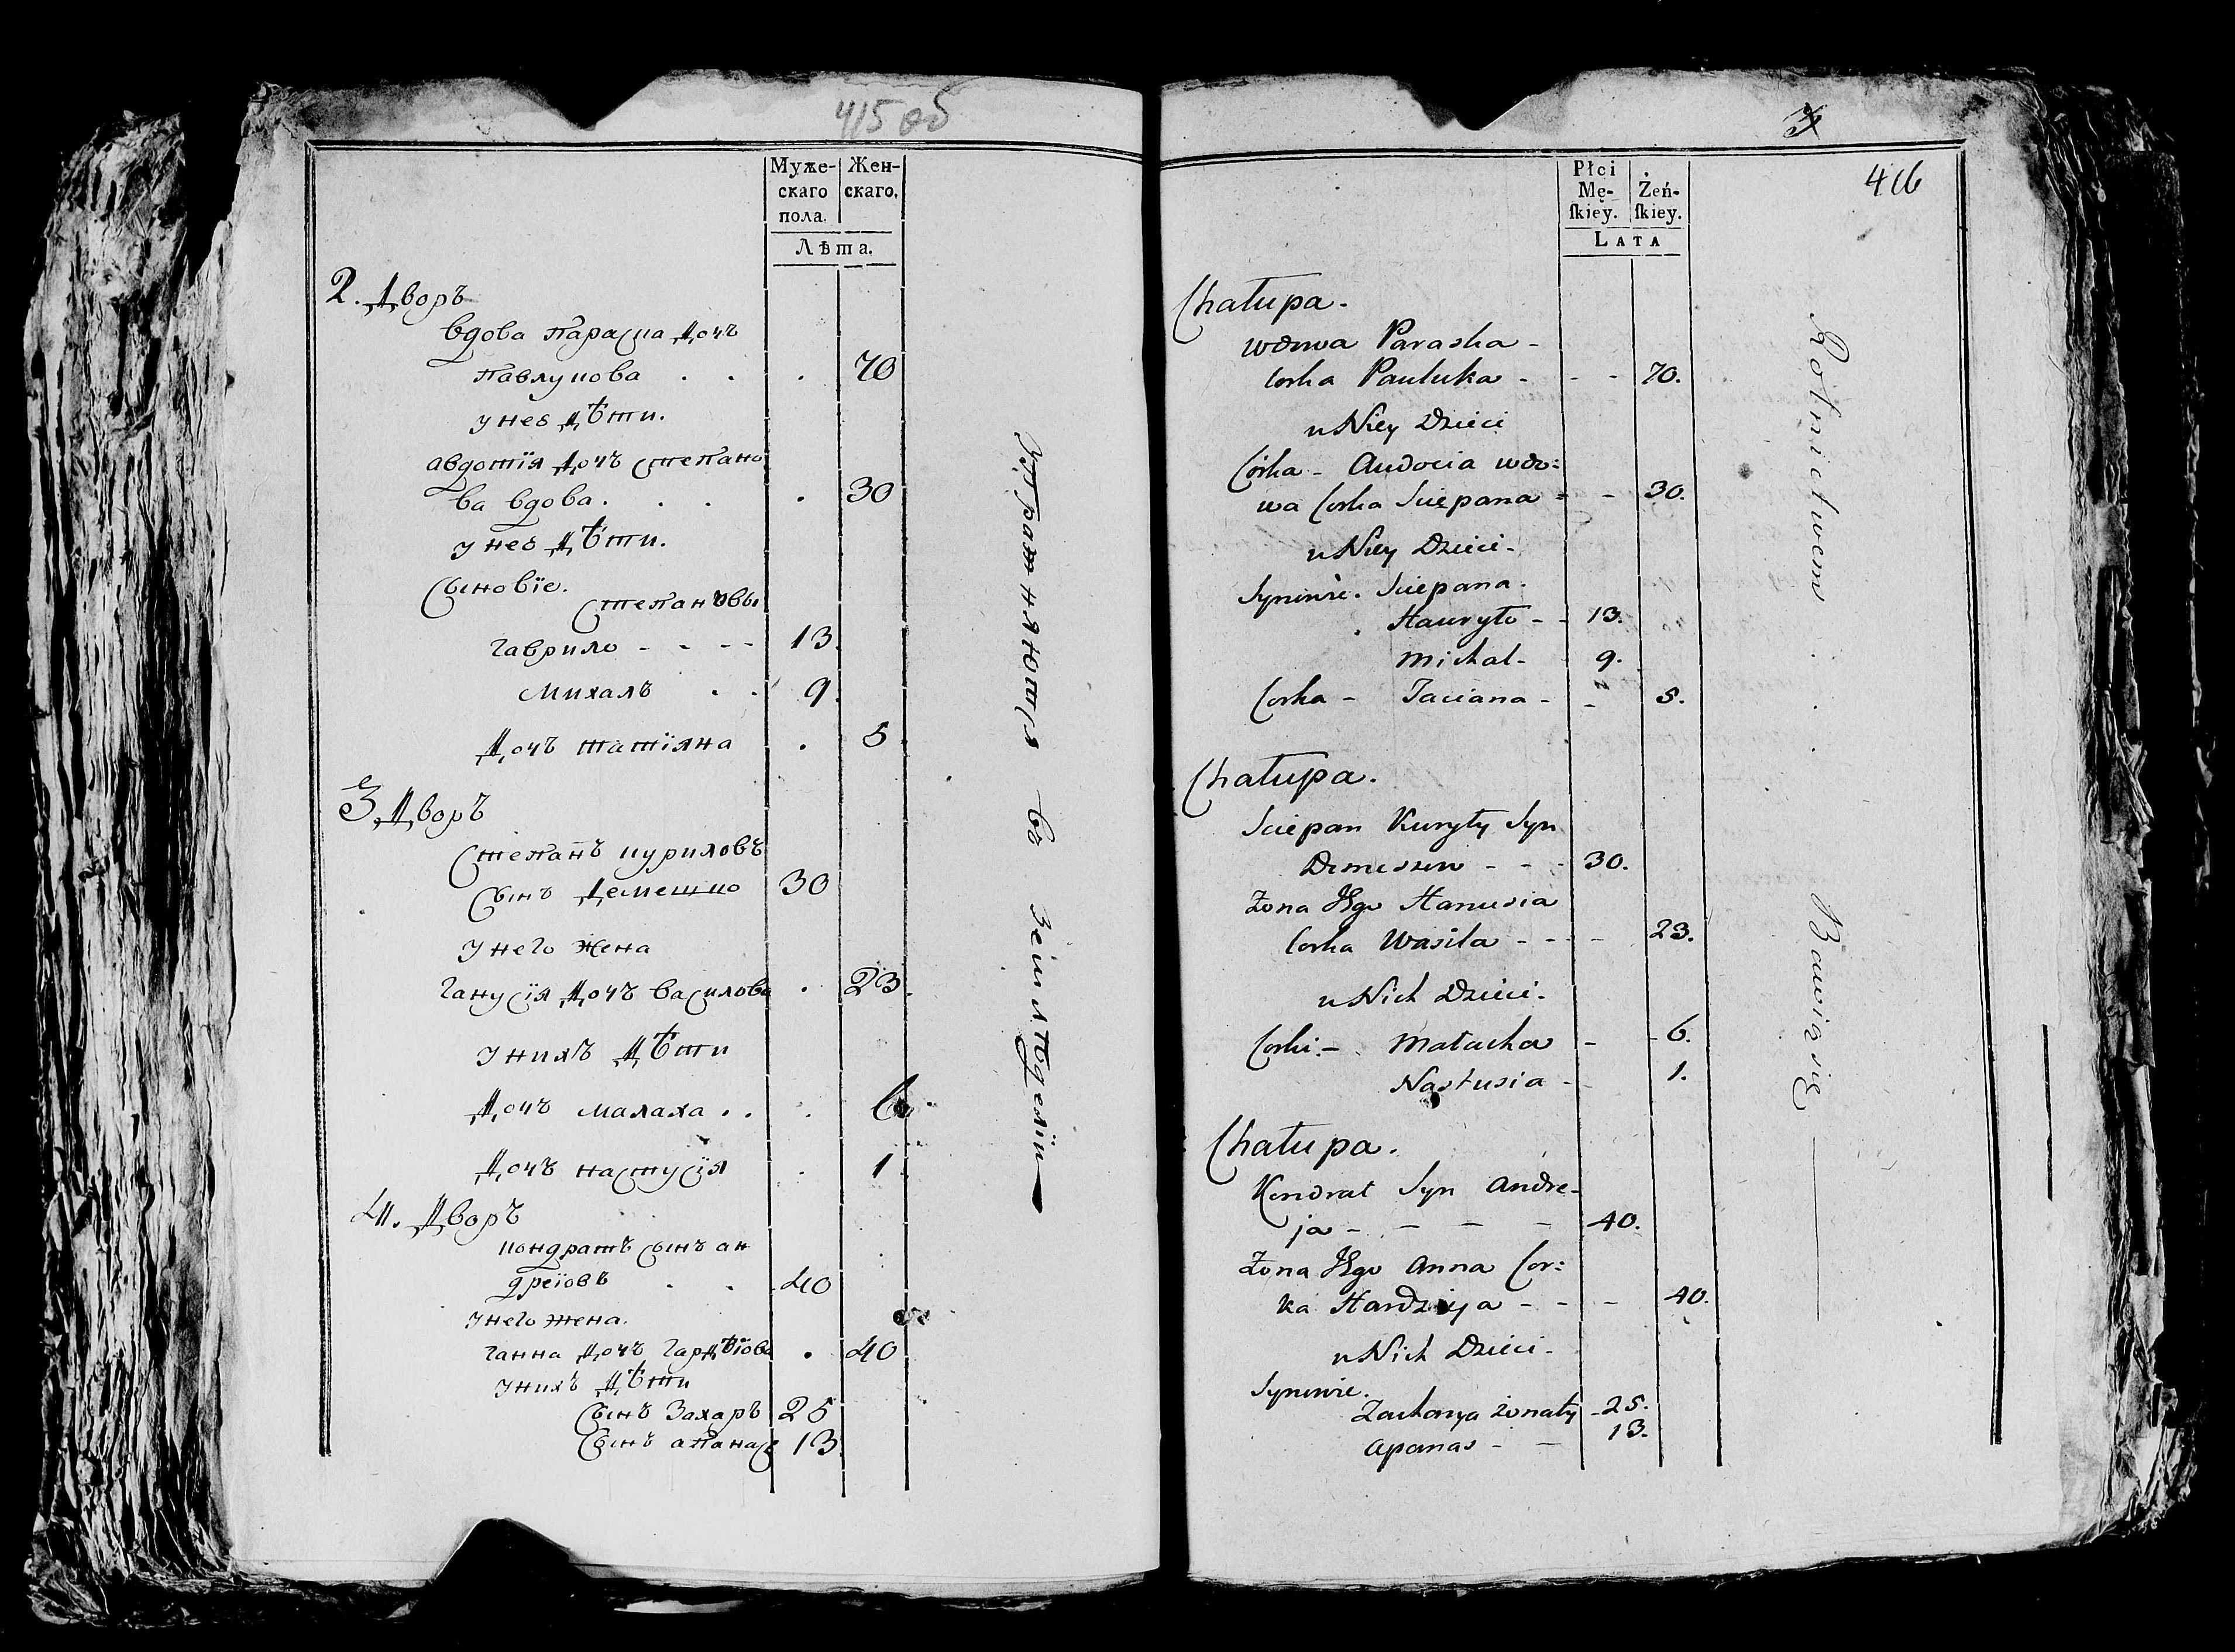 415 об
Муже-
скаго
пола.
Жен-
скаго.
Лѣта.
2. Дворъ
вдова Параска дочъ
Павлукова . . . 70
у нее дѣти.
авдотія дочъ степано
ва вдова. . . . 30
у нее дѣти.
Сыновіе.
Степановы
гаврило - - - - 13
Михалъ . . 9
Дочъ татіяна . 5
3 Дворъ
Степанъ куриловъ
сынъ Демешко 30
у него жена
гануся дочъ василова . 23.
у нихъ дѣти
дочъ малаха . . . 6
дочъ настуся . 1
4. Дворъ
кондратъ сынъ ан
дреіовъ . . 40
у него жена.
ганна дочъ гардѣіова . 40
у нихъ дѣти
сынъ Захаръ 25
сынъ апанасъ 13
упражняются въ земледеліи
3
416
Płci
Mę-
ſkiey.
Żeń-
ſkiey.
LATA
Chałupa.
wdowa Paraska -
Corka Pauluka - - - 70.
u Niey Dzieci
Córka - Audocia wdo=
wa Corka Sciepana - - 30.
u Niey Dzieci -
Synowie. Sciepana.
Hauryło - - 13.
Michal - 9.
Corka - Taciana - - 5.
Chałupa.
Sciepan Kuryły Syn
Demeszko - - - 30.
Żona Jego Hanusia
Corka Wasila - - - - 23.
u Nich Dzieci.
Corki. - Małacha - - 6.
Nastusia - 1.
Chałupa.
Kondrat Syn Andre-
ja - - - - 40.
Żona Jego Anna Cor=
ka Hardzieja - - - 40.
u Nich Dzieci -
Synowie.
Zacharya żonaty - 25.
Apanas - - 13.
Rolnictwem . . . Bawią się